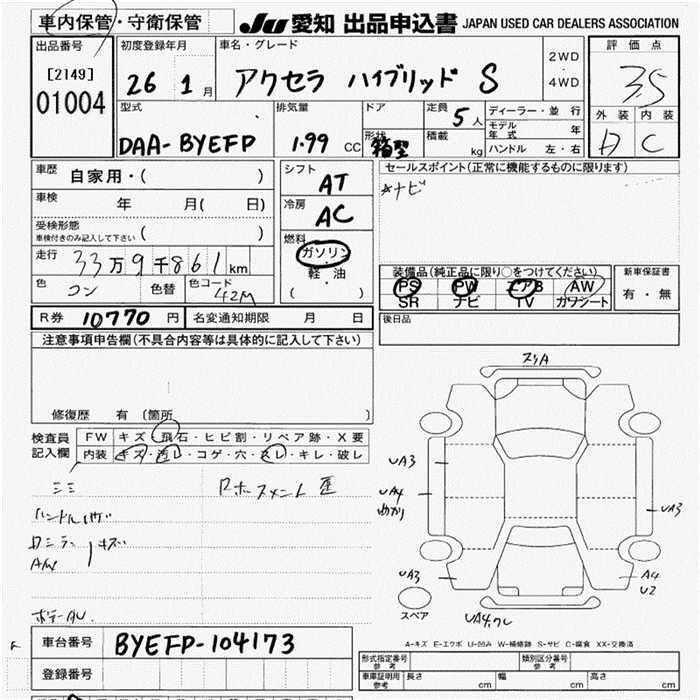 車内保管・守衛保管 JU 愛知 出品申込書 JAPAN USED CAR DEALERS ASSOCIATION
出品番号 初度登録年月 車名・グレード 2WD・4WD 評価点
[2149] 01004
26 1月 アクセラ ハイブリッド S 3.5
型式 排気量 ドア 定員 5人 ディーラー・並行 外装 内装
DAA-BYEFP 1.99 CC 形状 箱型 積載 kg モデル年式 年 A C
ハンドル 左・右
車歴 自家用・( ) シフト AT セールスポイント(正常に機能するものに限ります)
車検 年 月( 日) 冷房 AC ナビ
受検形態 ( )
車検付きのみ記入して下さい
燃料 ガソリン・軽油 ( )
走行 33万9千861km
装備品(純正品に限り○をつけてください) 新車保証書
色 コン 色替 色コード 42M
PS PW エアB AW 有・無
SR ナビ TV カワシート
R券 10770円 名変通知期限 月 日 後日品
注意事項申告欄(不具合内容等は具体的に記入して下さい)
修復歴 有 〔箇所 〕
検査員記入欄 FW キズ・飛石・ヒビ割・リペア跡・X要
内装 キズ・汚レ・コゲ・穴・スレ・キレ・破レ
ミミ
ハンドル
A/W キズ
スリA
UA3
UA4
UA3
UA3
A4
U2
スペア
A-キズ E-エクボ U-凹み W-補修跡 S-サビ C-腐食 XX-交換済
車台番号 BYEFP-104173
登録番号
形式指定番号 参考 類別区分番号 参考
車庫証明用 参考 長さ cm 幅 cm 高さ cm